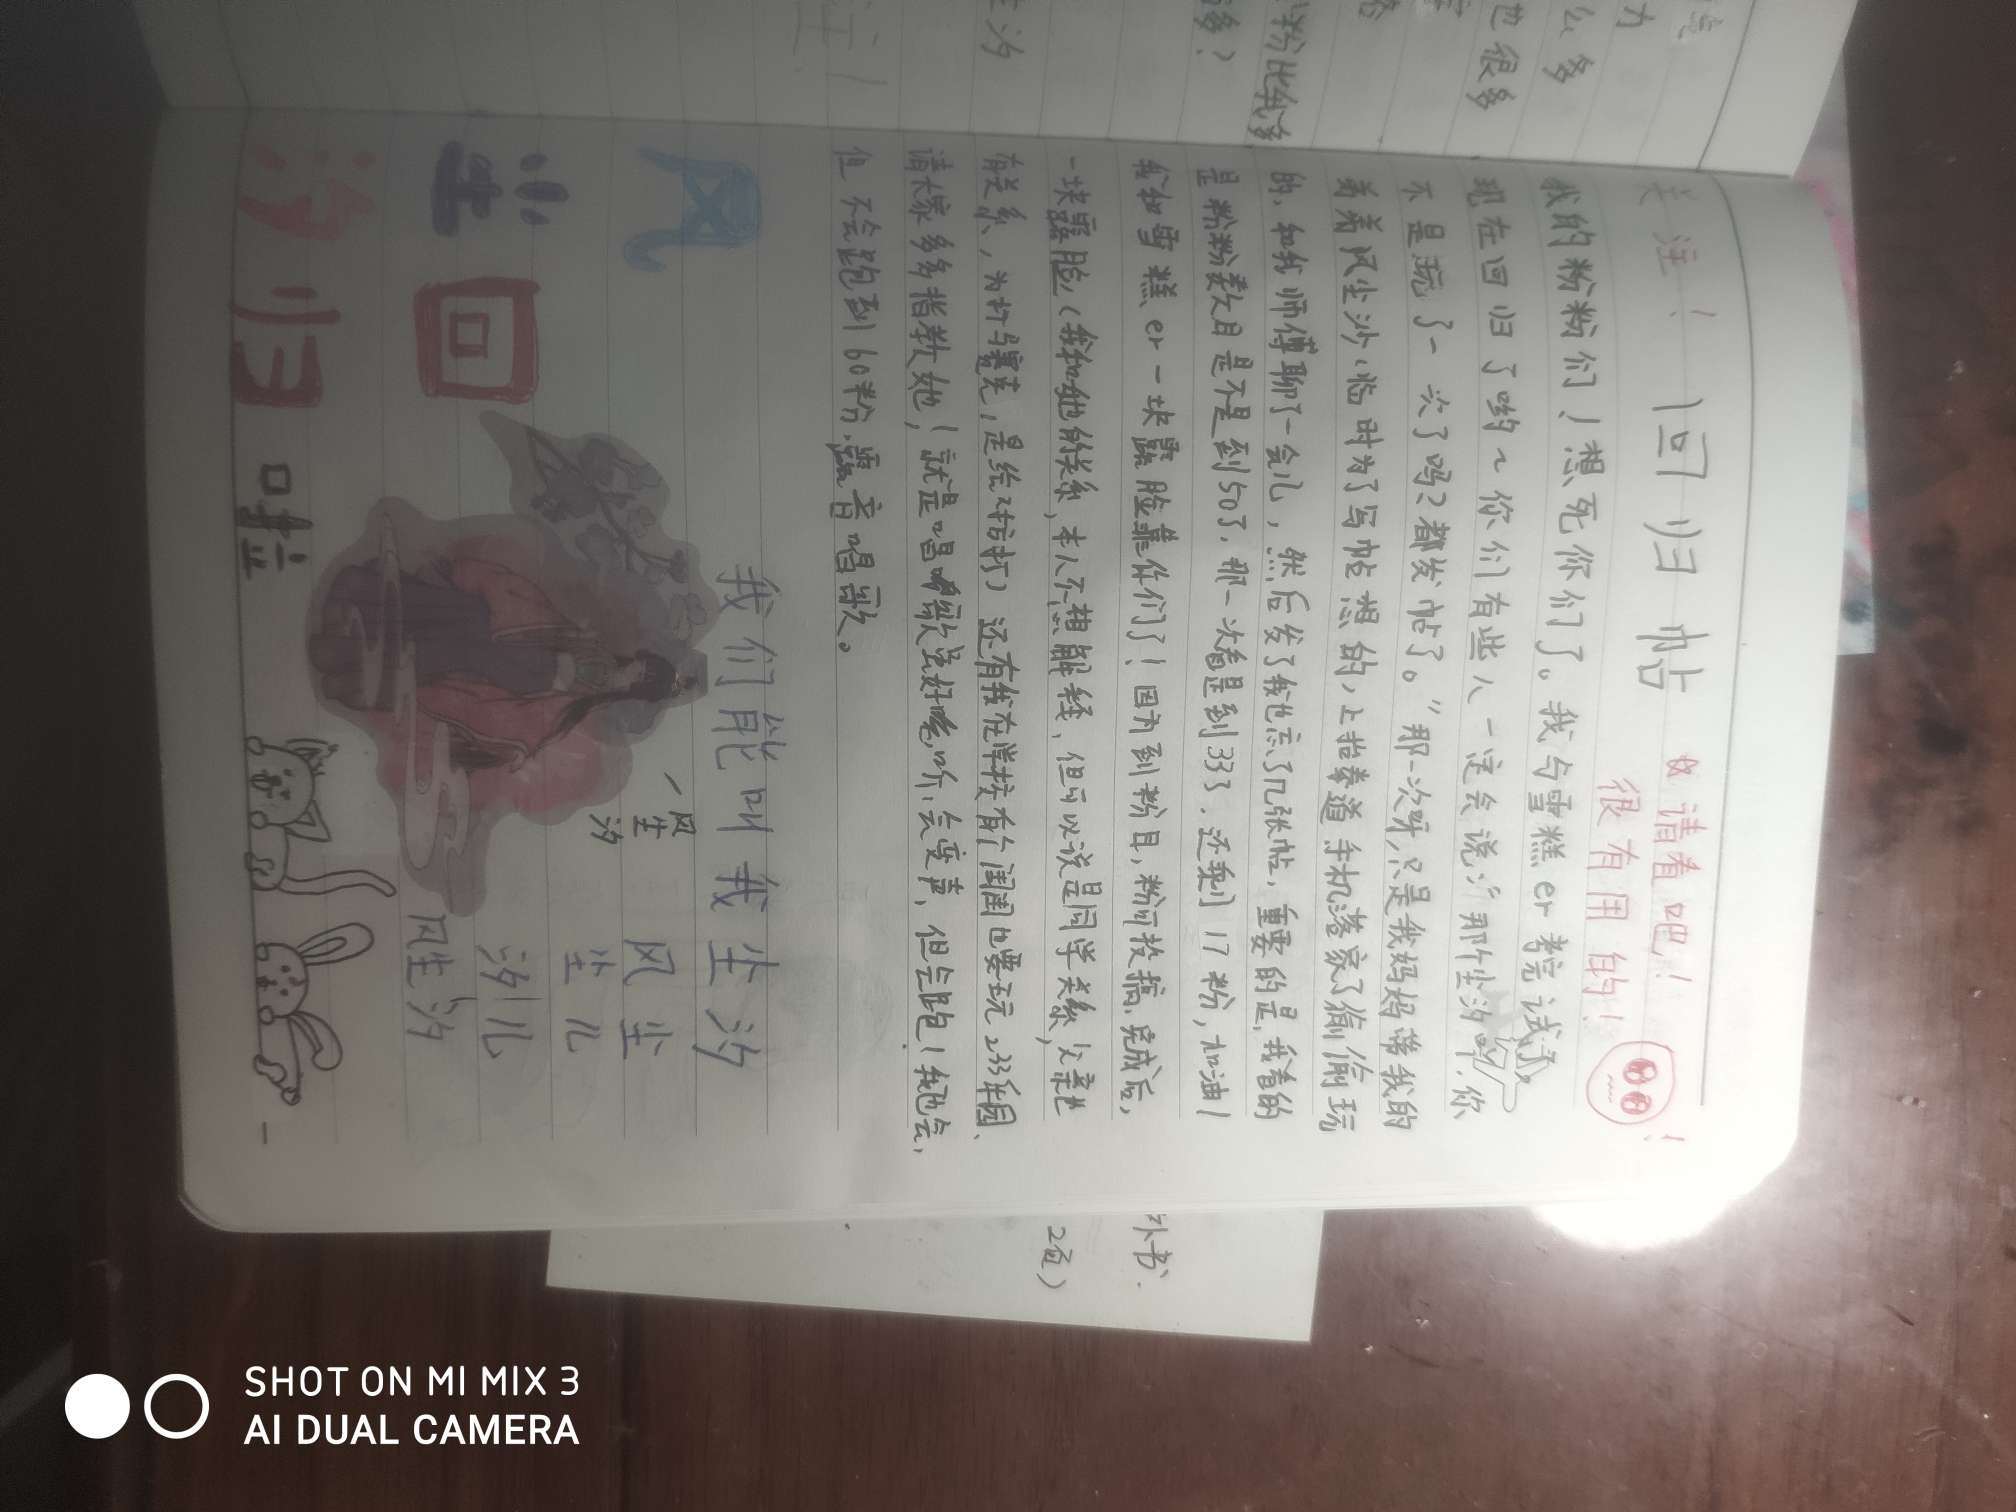 关注！
回归帖
请看吧！
很有用的！
我的粉粉们！想死你们了。我与雪糕er考完试了，
现在回归了哟～你们有些人一定会说："那个尘汐啊，你
不是玩了一次了吗？都发帖了。"那一次呀，只是我妈妈带我的
弟弟风尘沙、临时为了写帖想的，上跆拳道手机落家了偷偷玩
的，和我师傅聊了一会儿，然后发了我也忘了几张帖，重要的是，我看的
是粉粉数目是不是到50了，那一次看是到33了，还剩17粉，加油！
我和雪糕er一块露脸靠你们了！因为到粉目，粉可投稿，完成后，
一块露脸，（我和她的关系，本人不想解释，但可以说是同学关系，父亲也
有关系，为打马赛克，是绘本打）还有我在学校有个闺闺也要玩233乐园、
请大家多多指教她，！就是唱歌蛮好听，会变声，但会跑！我也会，
但不会跑到60粉，露音唱歌。
我们能叫我尘汐
风尘
尘儿
汐儿
风尘汐
一风尘汐
风
尘
汐
回
归
啦
一
外书．
2页）
粉比我多
多？
也很多
么多
力
尘汐